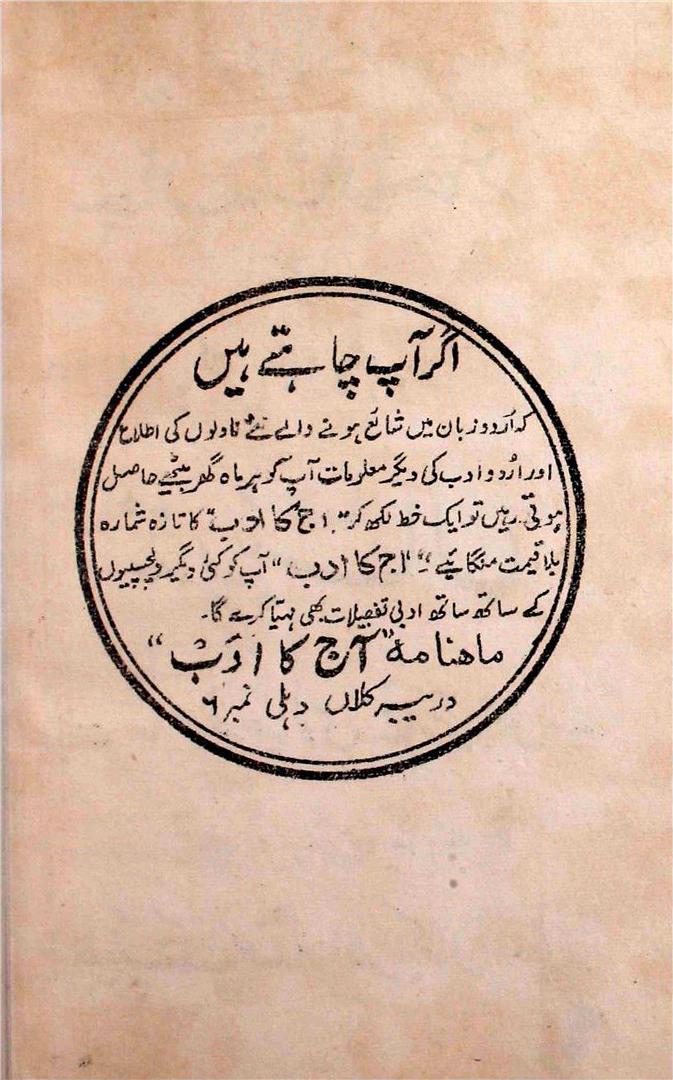 اگر آپ چاہتے ہیں
کہ اُردو زبان میں شائع ہونے والے نئے ناولوں کی اطلاع
اور اُردو ادب کی دیگر معلومات آپ کو ہر ماہ گھر بیٹھے حاصل
ہوتی رہیں تو ایک خط لکھ کر "آج کا ادب" کا تازہ شمارہ
بلا قیمت منگائیے "آج کا ادب" آپ کو کئی دیگر دلچسپیوں
کے ساتھ ساتھ ادبی تفصیلات بھی مہیا کرے گا۔
ماہنامہ "آج کا ادَب"
دریبہ کلاں دہلی نمبر ۶